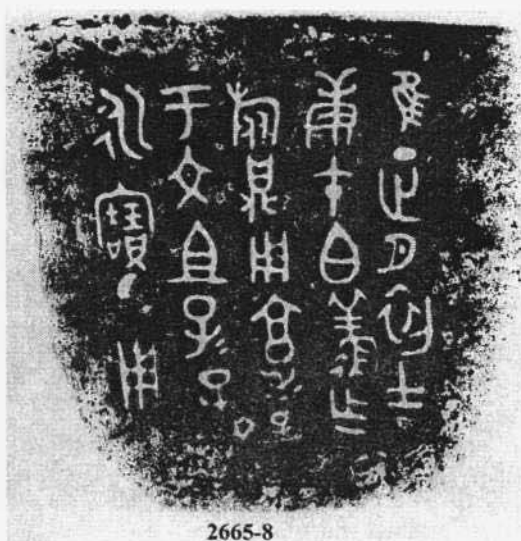 隹正月初吉
庚午白鮮乍
旅鼎用亯孝
于文且子〻孫〻
永寶用
2665-8